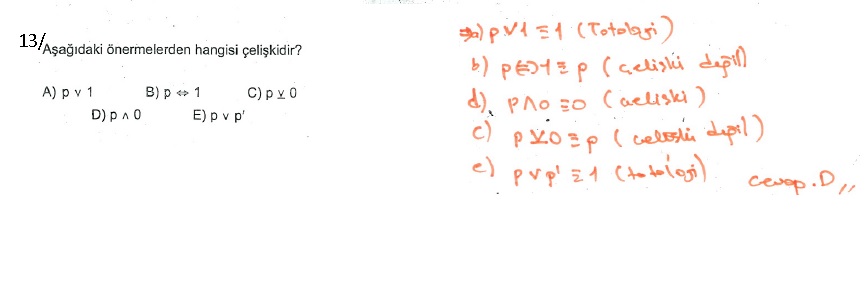 13/ Aşağıdaki önermelerden hangisi çelişkidir?
A) p v 1 B) p ⇔ 1 C) p v̲ 0
D) p ∧ 0 E) p v p'
a) p v 1 ≡ 1 (Totoloji)
b) p ⇔ 1 ≡ p (çelişki değil)
d) p ∧ 0 ≡ 0 (çelişki)
c) p v̲ 0 ≡ p (çelişki değil)
e) p v p' ≡ 1 (totoloji)
cevap. D,,